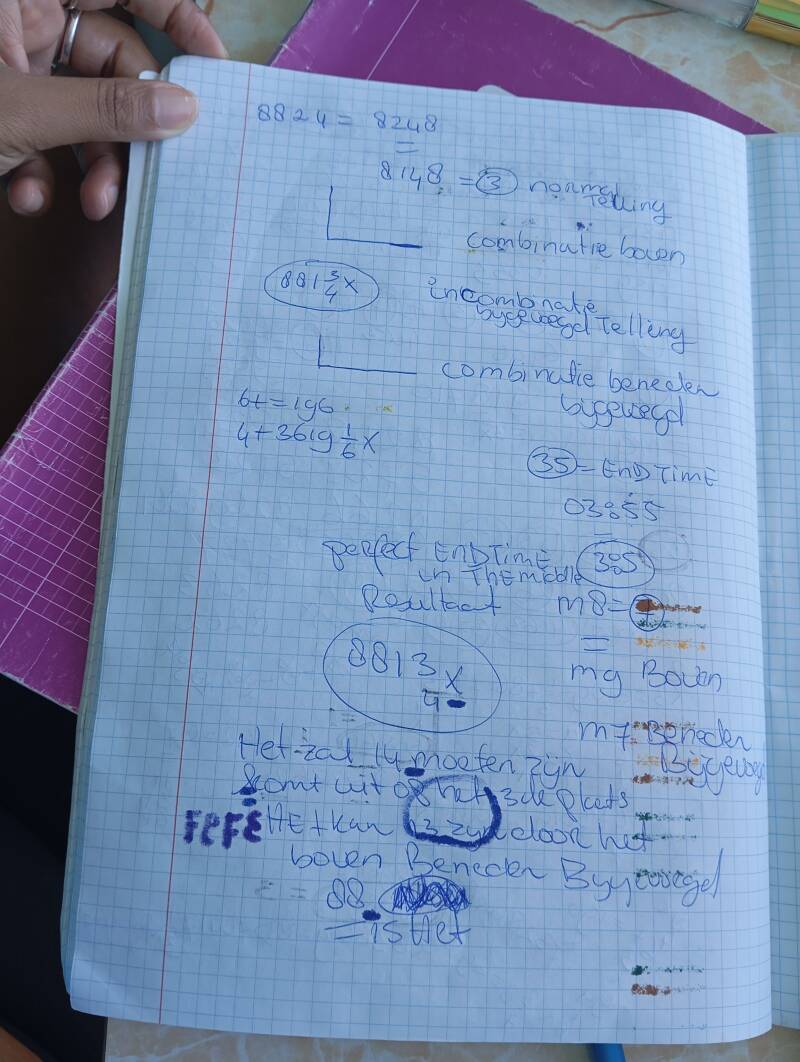 8824 = 8248
=
8148 = 3 normal Telling
combinatie boven
8813/4 x
incombinatie bygevoegd Telling
combinatie beneden bijgevoegd
6+=196
4+3619 1/6 x
35 = END TIME
03855
perfect END TIME in The middle 385
Resultaat m8=7
=
8813 x
4
m9 Boven
m7 Beneden Bijgevoegd
Het zal 14 moeten zijn
komt uit 08 het 3de plaats
FEFE HEt kan 13 zijn door het
boven Beneden Bijgevoegd
= 88.
= is Het